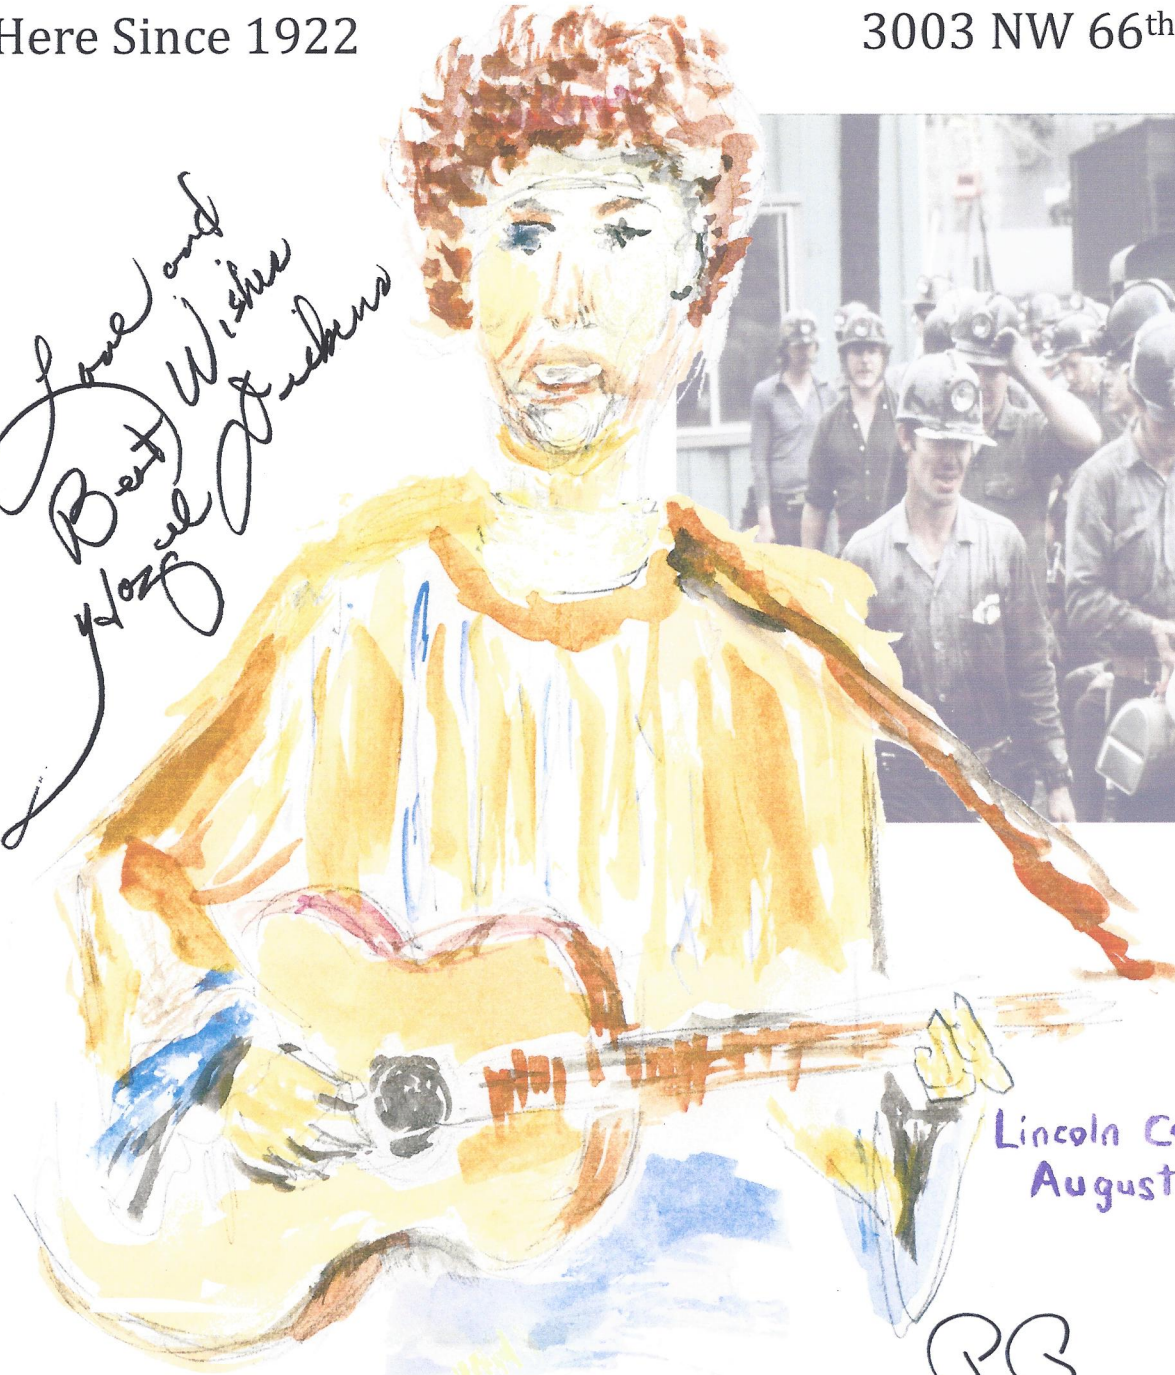 Here Since 1922
3003 NW 66th
Love and
Best Wishes
Hazel Dickens
Lincoln C
August